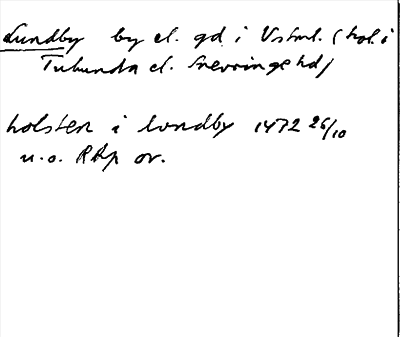 Lundby by el. gd i Vstml. (hol. i
Tuhundra el. Snevringe hd)
holsten i lundby 1472 26/10
u.o. RAp or.